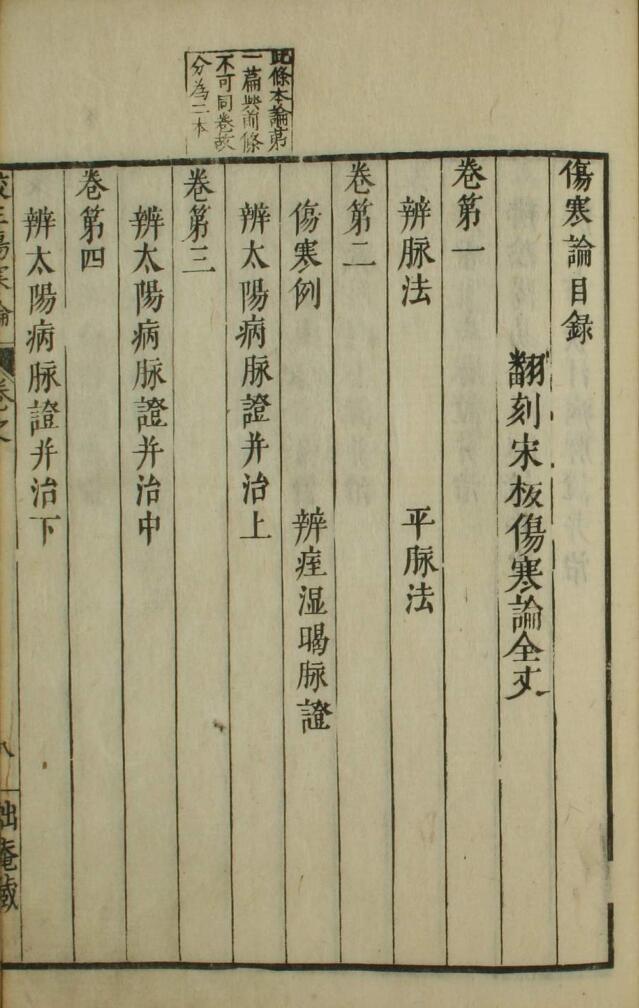 此條本論第
一篇與前條
不可同卷故
分為二本
傷寒論目録
翻刻宋板傷寒論全文
卷第一
辨脉法 平脉法
卷第二
傷寒例 辨痓湿暍脉證
辨太陽病脉證并治上
卷第三
辨太陽病脉證并治中
卷第四
辨太陽病脉證并治下